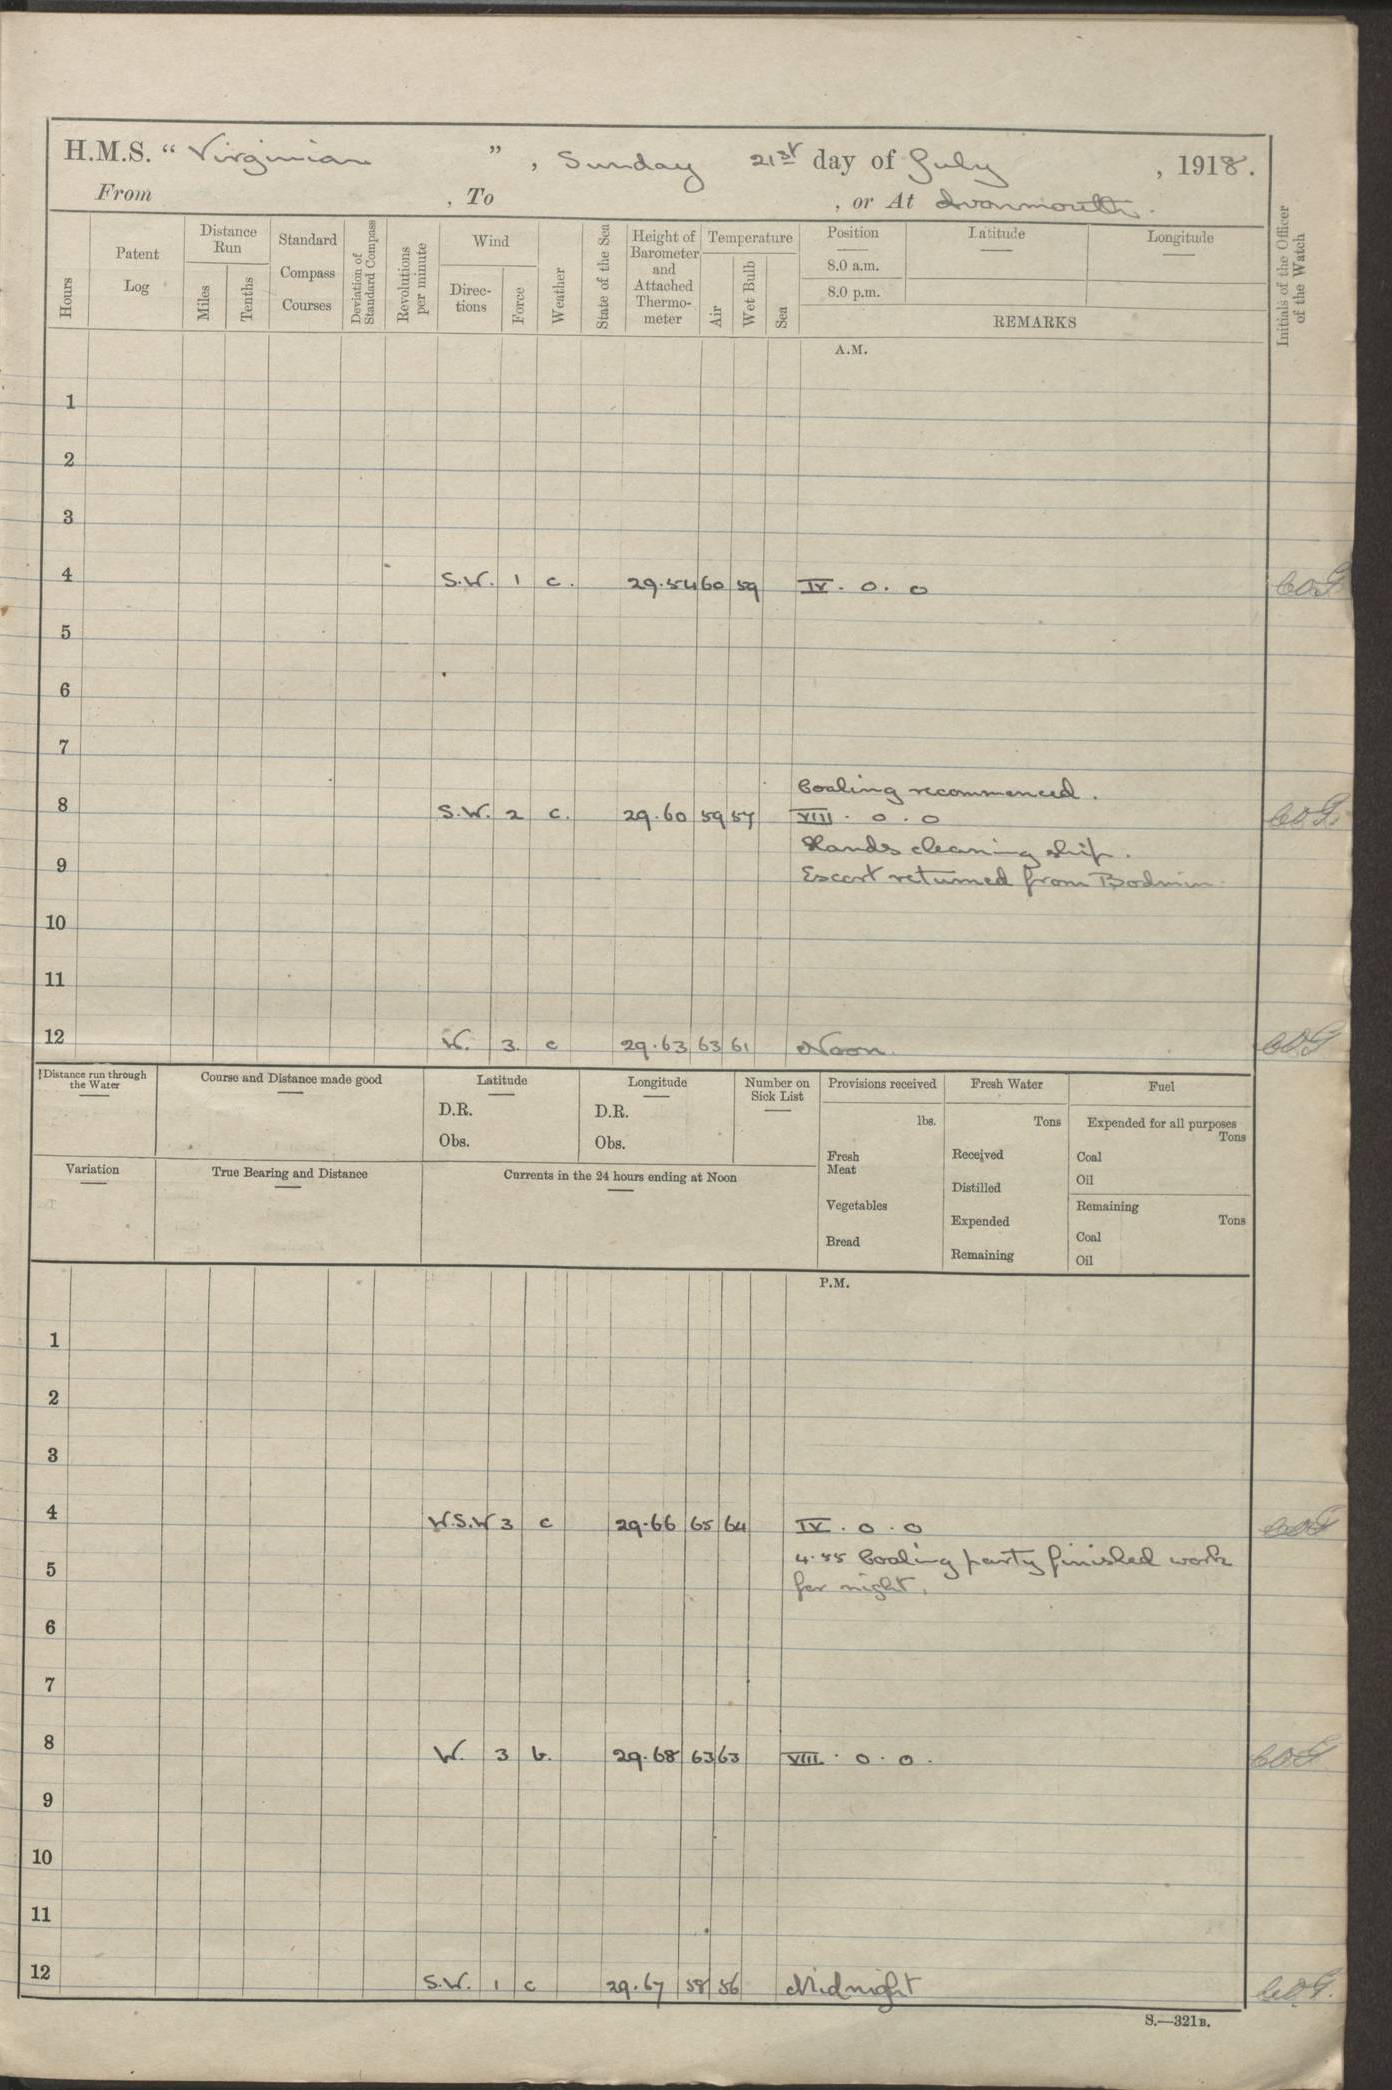 H.M.S. “ Virginian ” , Sunday 21st day of July , 1918.
From , To , or At Avonmouth.
Hours
Patent Log
Distance Run
Miles
Tenths
Standard Compass Courses
Deviation of Standard Compass
Revolutions per minute
Wind
Direc-tions
Force
Weather
State of the Sea
Height of Barometer and Attached Thermo-meter
Temperature
Air
Wet Bulb
Sea
Position
8.0 a.m.
8.0 p.m.
Latitude
Longitude
REMARKS
Initials of the Officer of the Watch
A.M.
1
2
3
4 S.W. 1 c. 29.54 60 59 IV. 0. 0
5
6
7
Coaling recommenced.
8 S.W. 2 c. 29.60 59 57 VIII. 0. 0
Hands cleaning ship.
9 Escort returned from Bodmin
10
11
12 W. 3. c 29.63 63 61 Noon.
Distance run through the Water
Course and Distance made good
Latitude
D.R.
Obs.
Longitude
D.R.
Obs.
Number on Sick List
Provisions received
lbs.
Fresh Meat
Vegetables
Bread
Fresh Water
Tons
Received
Distilled
Expended
Remaining
Fuel
Expended for all purposes
Tons
Coal
Oil
Remaining
Tons
Coal
Oil
Variation
True Bearing and Distance
Currents in the 24 hours ending at Noon
P.M.
1
2
3
4 W.S.W 3 c 29.66 65 64 IV. 0. 0
4.55 Coaling party finished work
5 for night.
6
7
8 W. 3 b. 29.68 63 63 VIII. 0. 0.
9
10
11
12 S.W. 1 c 29.67 58 56 Midnight
S.—321B.